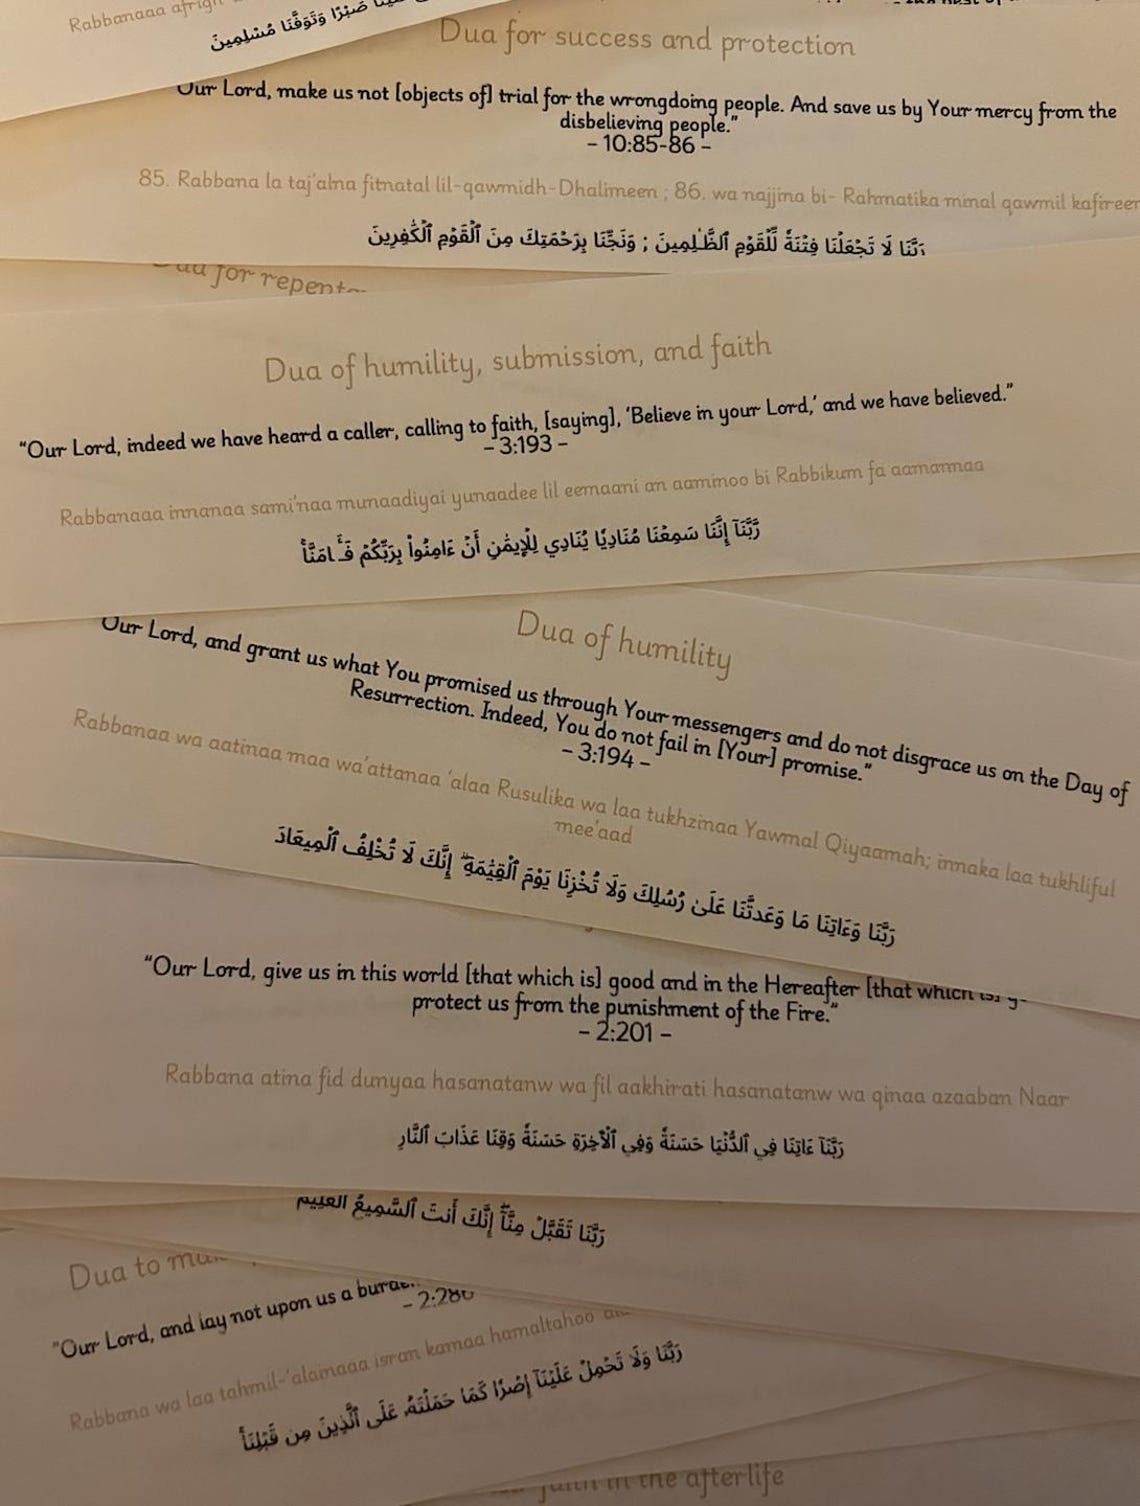 Rabbanaaa afrigh
صَبْرًا وَتَوَفَّنَا مُسْلِمِينَ
Dua for success and protection
Our Lord, make us not [objects of] trial for the wrongdoing people. And save us by Your mercy from the
disbelieving people.”
– 10:85-86 –
85. Rabbana la taj'alna fitnatal lil-qawmidh-Dhalimeen ; 86. wa najjina bi- Rahmatika minal qawmil kafireen
رَبَّنَا لَا تَجْعَلْنَا فِتْنَةً لِّلْقَوْمِ ٱلظَّٰلِمِينَ ; وَنَجِّنَا بِرَحْمَتِكَ مِنَ ٱلْقَوْمِ ٱلْكَٰفِرِينَ
Dua for repent
Dua of humility, submission, and faith
“Our Lord, indeed we have heard a caller, calling to faith, [saying], ‘Believe in your Lord,’ and we have believed.”
– 3:193 –
Rabbanaaa innanaa sami'naa munaadiyai yunaadee lil eemaani an aaminoo bi Rabbikum fa aamannaa
رَّبَّنَآ إِنَّنَا سَمِعْنَا مُنَادِيًا يُنَادِي لِلْإِيمَٰنِ أَنْ ءَامِنُوا۟ بِرَبِّكُمْ فَـَٔامَنَّا
Dua of humility
Our Lord, and grant us what You promised us through Your messengers and do not disgrace us on the Day of
Resurrection. Indeed, You do not fail in [Your] promise.”
– 3:194 –
Rabbanaa wa aatinaa maa wa'attanaa 'alaa Rusulika wa laa tukhzinaa Yawmal Qiyaamah; innaka laa tukhliful
mee'aad
رَبَّنَا وَءَاتِنَا مَا وَعَدتَّنَا عَلَىٰ رُسُلِكَ وَلَا تُخْزِنَا يَوْمَ ٱلْقِيَٰمَةِ ۗ إِنَّكَ لَا تُخْلِفُ ٱلْمِيعَادَ
“Our Lord, give us in this world [that which is] good and in the Hereafter [that which is] g
protect us from the punishment of the Fire.”
– 2:201 –
Rabbana atina fid dunyaa hasanatanw wa fil aakhirati hasanatanw wa qinaa azaaban Naar
رَبَّنَآ ءَاتِنَا فِي ٱلدُّنْيَا حَسَنَةً وَفِي ٱلْـَٔاخِرَةِ حَسَنَةً وَقِنَا عَذَابَ ٱلنَّارِ
رَبَّنَا تَقَبَّلْ مِنَّآ ۖ إِنَّكَ أَنتَ ٱلسَّمِيعُ ٱلْعَلِيمُ
Dua to
“Our Lord, and lay not upon us a burden
– 2:286
Rabbana wa laa tahmil-'alainaaa isran kamaa hamaltahoo
رَبَّنَا وَلَا تَحْمِلْ عَلَيْنَآ إِصْرًا كَمَا حَمَلْتَهُۥ عَلَى ٱلَّذِينَ مِن قَبْلِنَا
faith in the afterlife